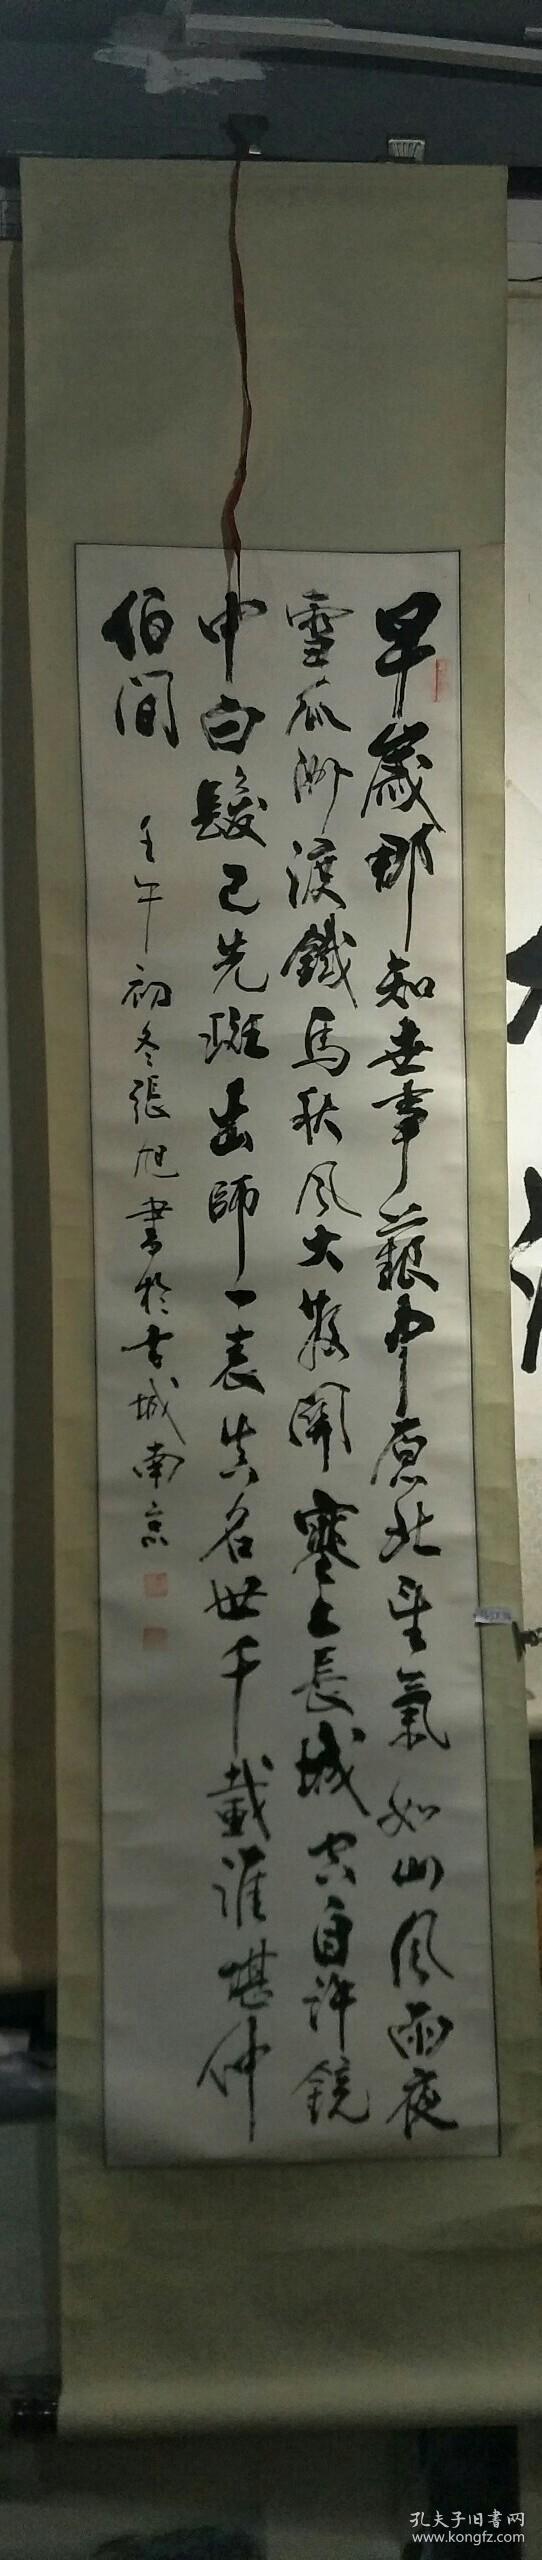 早歲那知世事艱中原北望氣如山風雨夜
雪瓜洲渡鐵馬秋風大散關塞上長城空自許鏡
中白髮已先斑出師一表真名世千載誰堪仲
伯間
壬午初冬張旭書於古城南京
孔夫子旧書网
www.kongfz.com